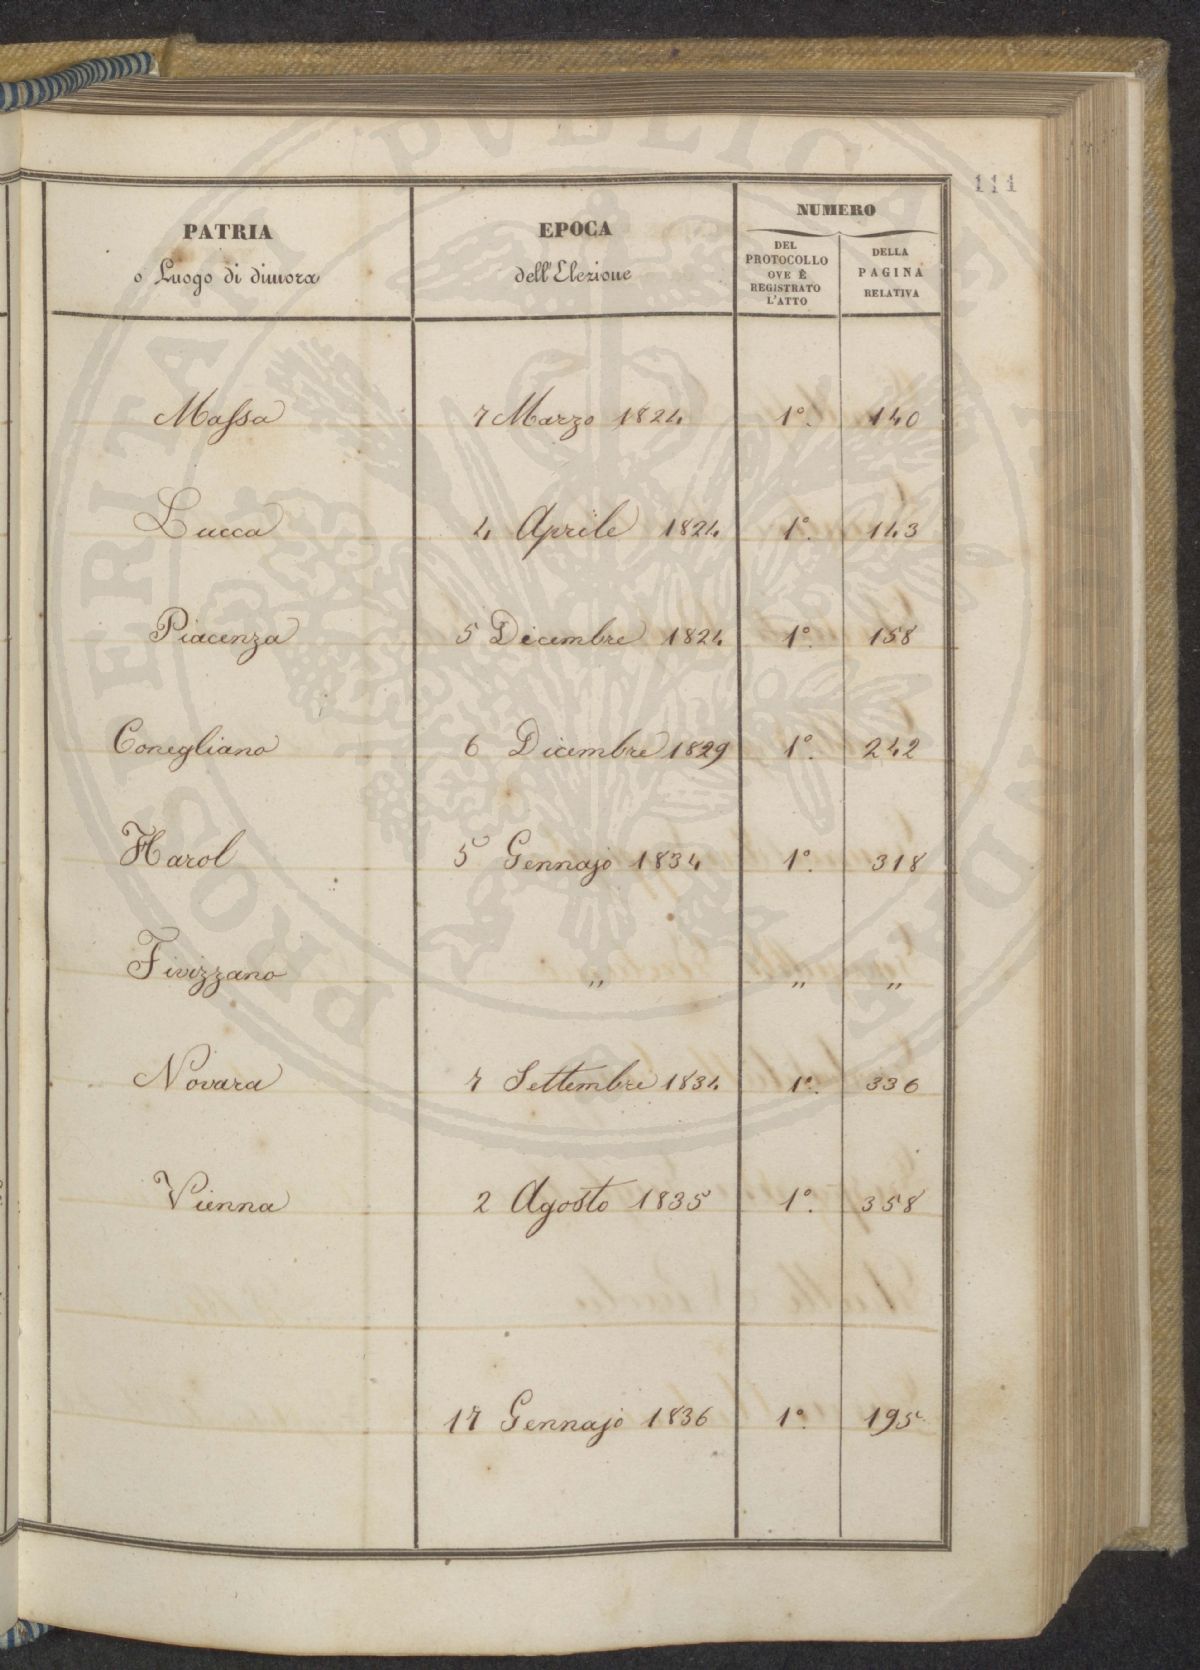 111
PATRIA
o Luogo di dimora
EPOCA
dell'Elezione
NUMERO
DEL
PROTOCOLLO
OVE È
REGISTRATO
L'ATTO
DELLA
PAGINA
RELATIVA
Massa 7 Marzo 1824 1º. 140
Lucca 4 Aprile 1824 1º. 143
Piacenza 5 Dicembre 1824 1º. 158
Conegliano 6 Dicembre 1829 1º. 242
Harol 5 Gennajo 1834 1º. 318
Fivizzano " " "
Novara 7 Settembre 1834 1º. 336
Vienna 2 Agosto 1835 1º. 358
17 Gennajo 1836 1º. 195